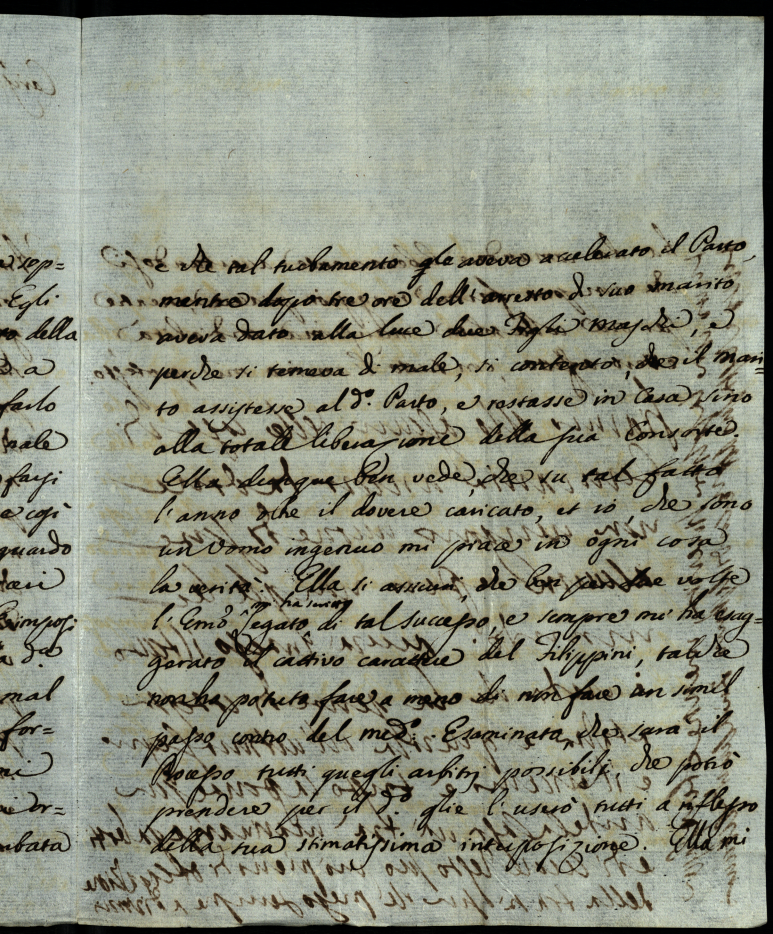 e sop=
Egli
to della
a
farlo
nale
farsi
e così
guardo
mal
for=
or=
mbata
e che tal turbamento gle aveva accelerato il Parto,
mentre dopo tre ore dell'arresto di suo marito,
aveva dato alla luce due Figli Maschi, e
perche si temeva di male, si contentò, che il mari=
to assistesse al do. Parto, e restasse in Casa sino
alla totale liberazione della sua consorte.
Ella dunque ben vede, che su tal fatto
l'anno oltre il dovere caricato, et io che sono
un Uomo ingenuo mi piace in ogni cosa
la verità. Ella si assicuri, che ben due volte
l'Emo Legato mi ha scritto di tal successo, e sempre mi ha esag=
gerato il cattivo carattere del Filippini, talche
non ha potuto fare a meno di non fare un simil
passo contro del medo. Esaminato, che sarà il
Processo tutti quegli arbitrj possibili, che potrò
prendere per il do. glie l'userò tutti a riflesso
della sua stimatissima interposizione. Ella mi